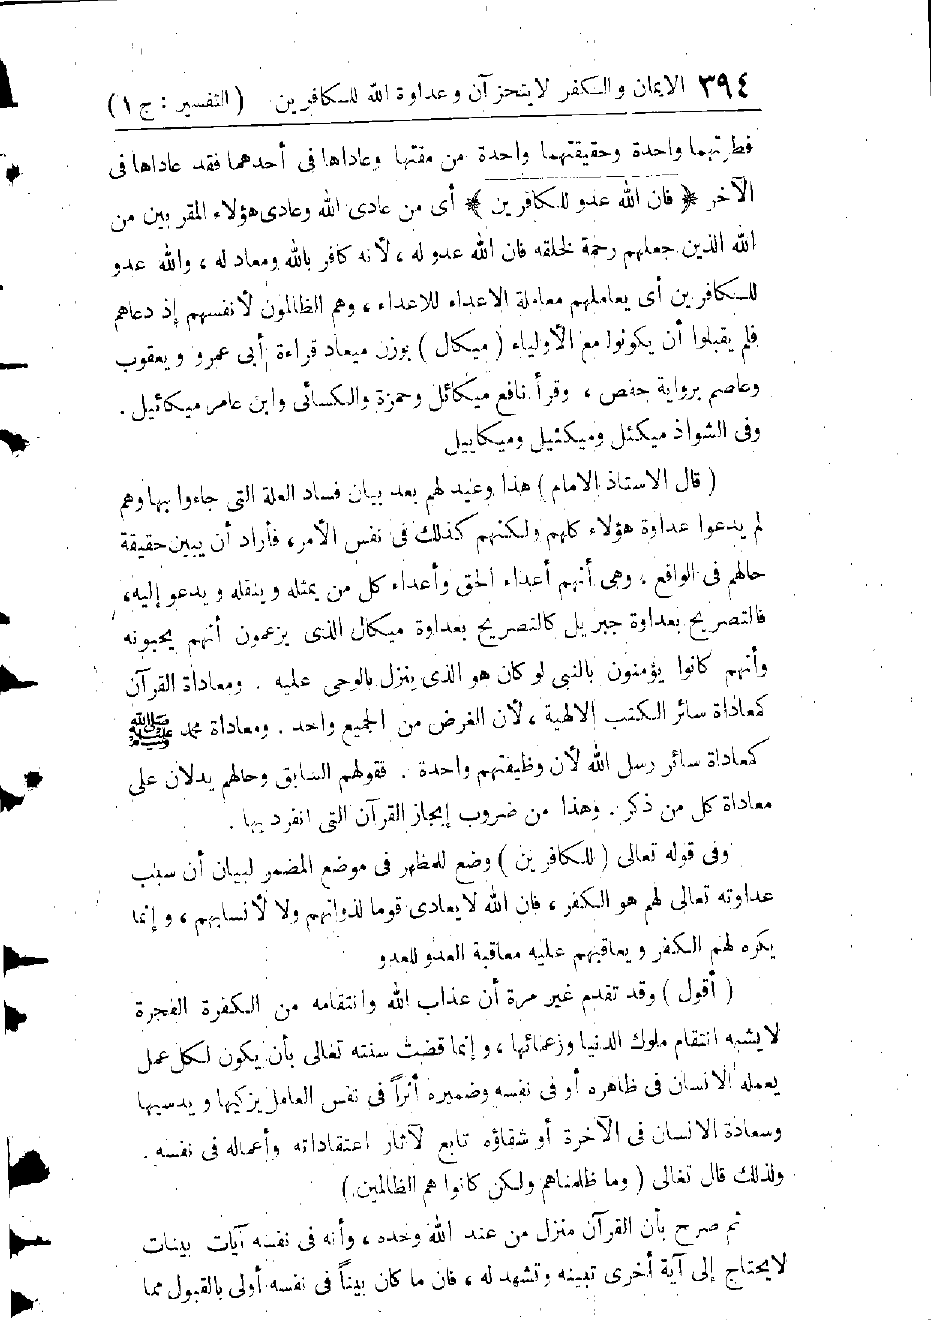 ٣٩٤ الايمان والكفر لايتجزآن وعداوة الله للكافرين (التفسير : ج ١)
فطرتهما واحدة وحقيقتهما واحدة من مقتها وعاداها فى أحدهما فقد عاداها فى
الآخر ﴿ فان الله عدو للكافرين ﴾ أى من عادى الله وعادى هؤلاء المقربين من
الله الذين جعلهم رحمة لخلقه فان الله عدو له ، لأنه كافر بالله ومعاد له ، والله عدو
للكافرين أى يعاملهم معاملة الاعداء للاعداء ، وهم الظالمون لأنفسهم إذ دعاهم
فلم يقبلوا أن يكونوا مع الأولياء ( ميكال ) بوزن ميعاد قراءة أبى عمرو ويعقوب
وعاصم برواية حفص ، وقرأ نافع ميكائل وحمزة والكسائى وابن عامر ميكائيل .
وفى الشواذ ميكئل وميكئيل وميكاييل
( قال الاستاذ الامام ) هذا وعيد لهم بعد بيان فساد العلة التى جاءوا بها وهم
لم يدعوا عداوة هؤلاء كلهم ولكنهم كذلك فى نفس الأمر، فأراد أن يبين حقيقة
حالهم فى الواقع ، وهى أنهم أعداء الحق وأعداء كل من يمثله وينقله ويدعو إليه،
فالتصريح بعداوة جبريل كالتصريح بعداوة ميكال الذى يزعمون أنهم يحبونه
وأنهم كانوا يؤمنون بالنبى لو كان هو الذى ينزل بالوحى عليه . ومعاداة القرآن
كمعاداة سائر الكتب الالهية ، لأن الغرض من الجميع واحد . ومعاداة محمد ﷺ
كمعاداة سائر رسل الله لأن وظيفتهم واحدة . فقولهم السابق وحالهم يدلان على
معاداة كل من ذكر . وهذا من ضروب إيجاز القرآن التى انفرد بها .
وفى قوله تعالى ( للكافرين ) وضع للمظهر فى موضع المضمر لبيان أن سبب
عداوته تعالى لهم هو الكفر ، فان الله لا يعادى قوما لذواتهم ولا لأنسابهم ، وإنما
يكره لهم الكفر ويعاقبهم عليه معاقبة العدو للعدو
( أقول ) وقد تقدم غير مرة أن عذاب الله وانتقامه من الكفرة الفجرة
لا يشبه انتقام ملوك الدنيا وزعمائها ، وإنما قضت سنته تعالى بأن يكون لكل عمل
يعمله الانسان فى ظاهره أو فى نفسه وضميره أثراً فى نفس العامل يزكيها ويدسيها
وسعادة الانسان فى الآخرة أو شقاؤه تابع لآثار اعتقاداته وأعماله فى نفسه .
ولذلك قال تعالى ( وما ظلمناهم ولكن كانوا هم الظالمين )
ثم صرح بأن القرآن منزل من عند الله وحده ، وأنه فى نفسه آيات بينات
لا يحتاج إلى آية أخرى تبينه وتشهد له ، فان ما كان بيناً فى نفسه أولى بالقبول مما